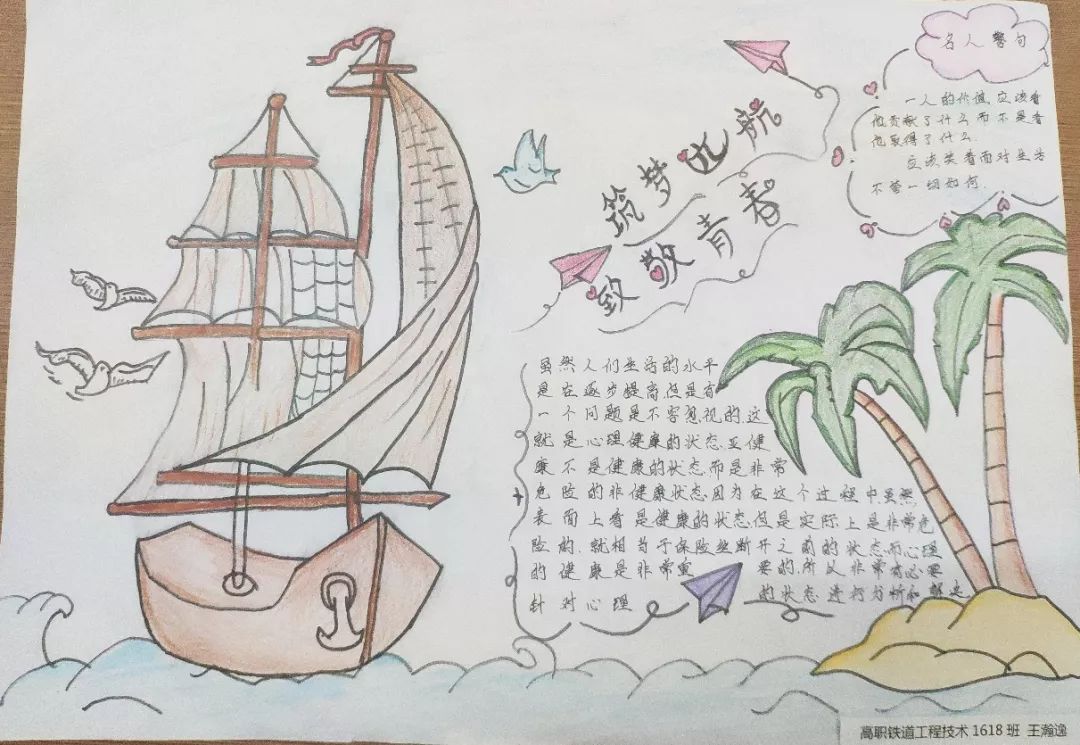 名人警句
一人的价值,应该看
他贡献了什么而不是看
他取得了什么.
应该笑着面对生活
不管一切如何.
筑梦远航
致敬青春
虽然人们生活的水平
是在逐步提高,但是有
一个问题是不容忽视的,这
就是心理健康的状态,亚健
康不是健康的状态,而是非常
危险的非健康状态,因为在这个过程中虽然
表面上看是健康的状态,但是实际上是非常危
险的.就相当于保险丝断开之前的状态,而心理
的健康是非常重要的,所以非常有必要
针对心理的状态进行分析和解决.
高职铁道工程技术1618班 王瀚逸